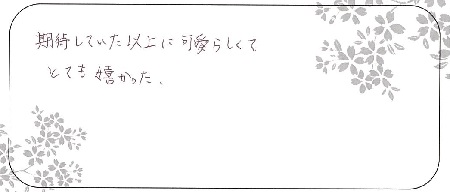 期待していた以上に可愛らしくて
とても嬉かった。